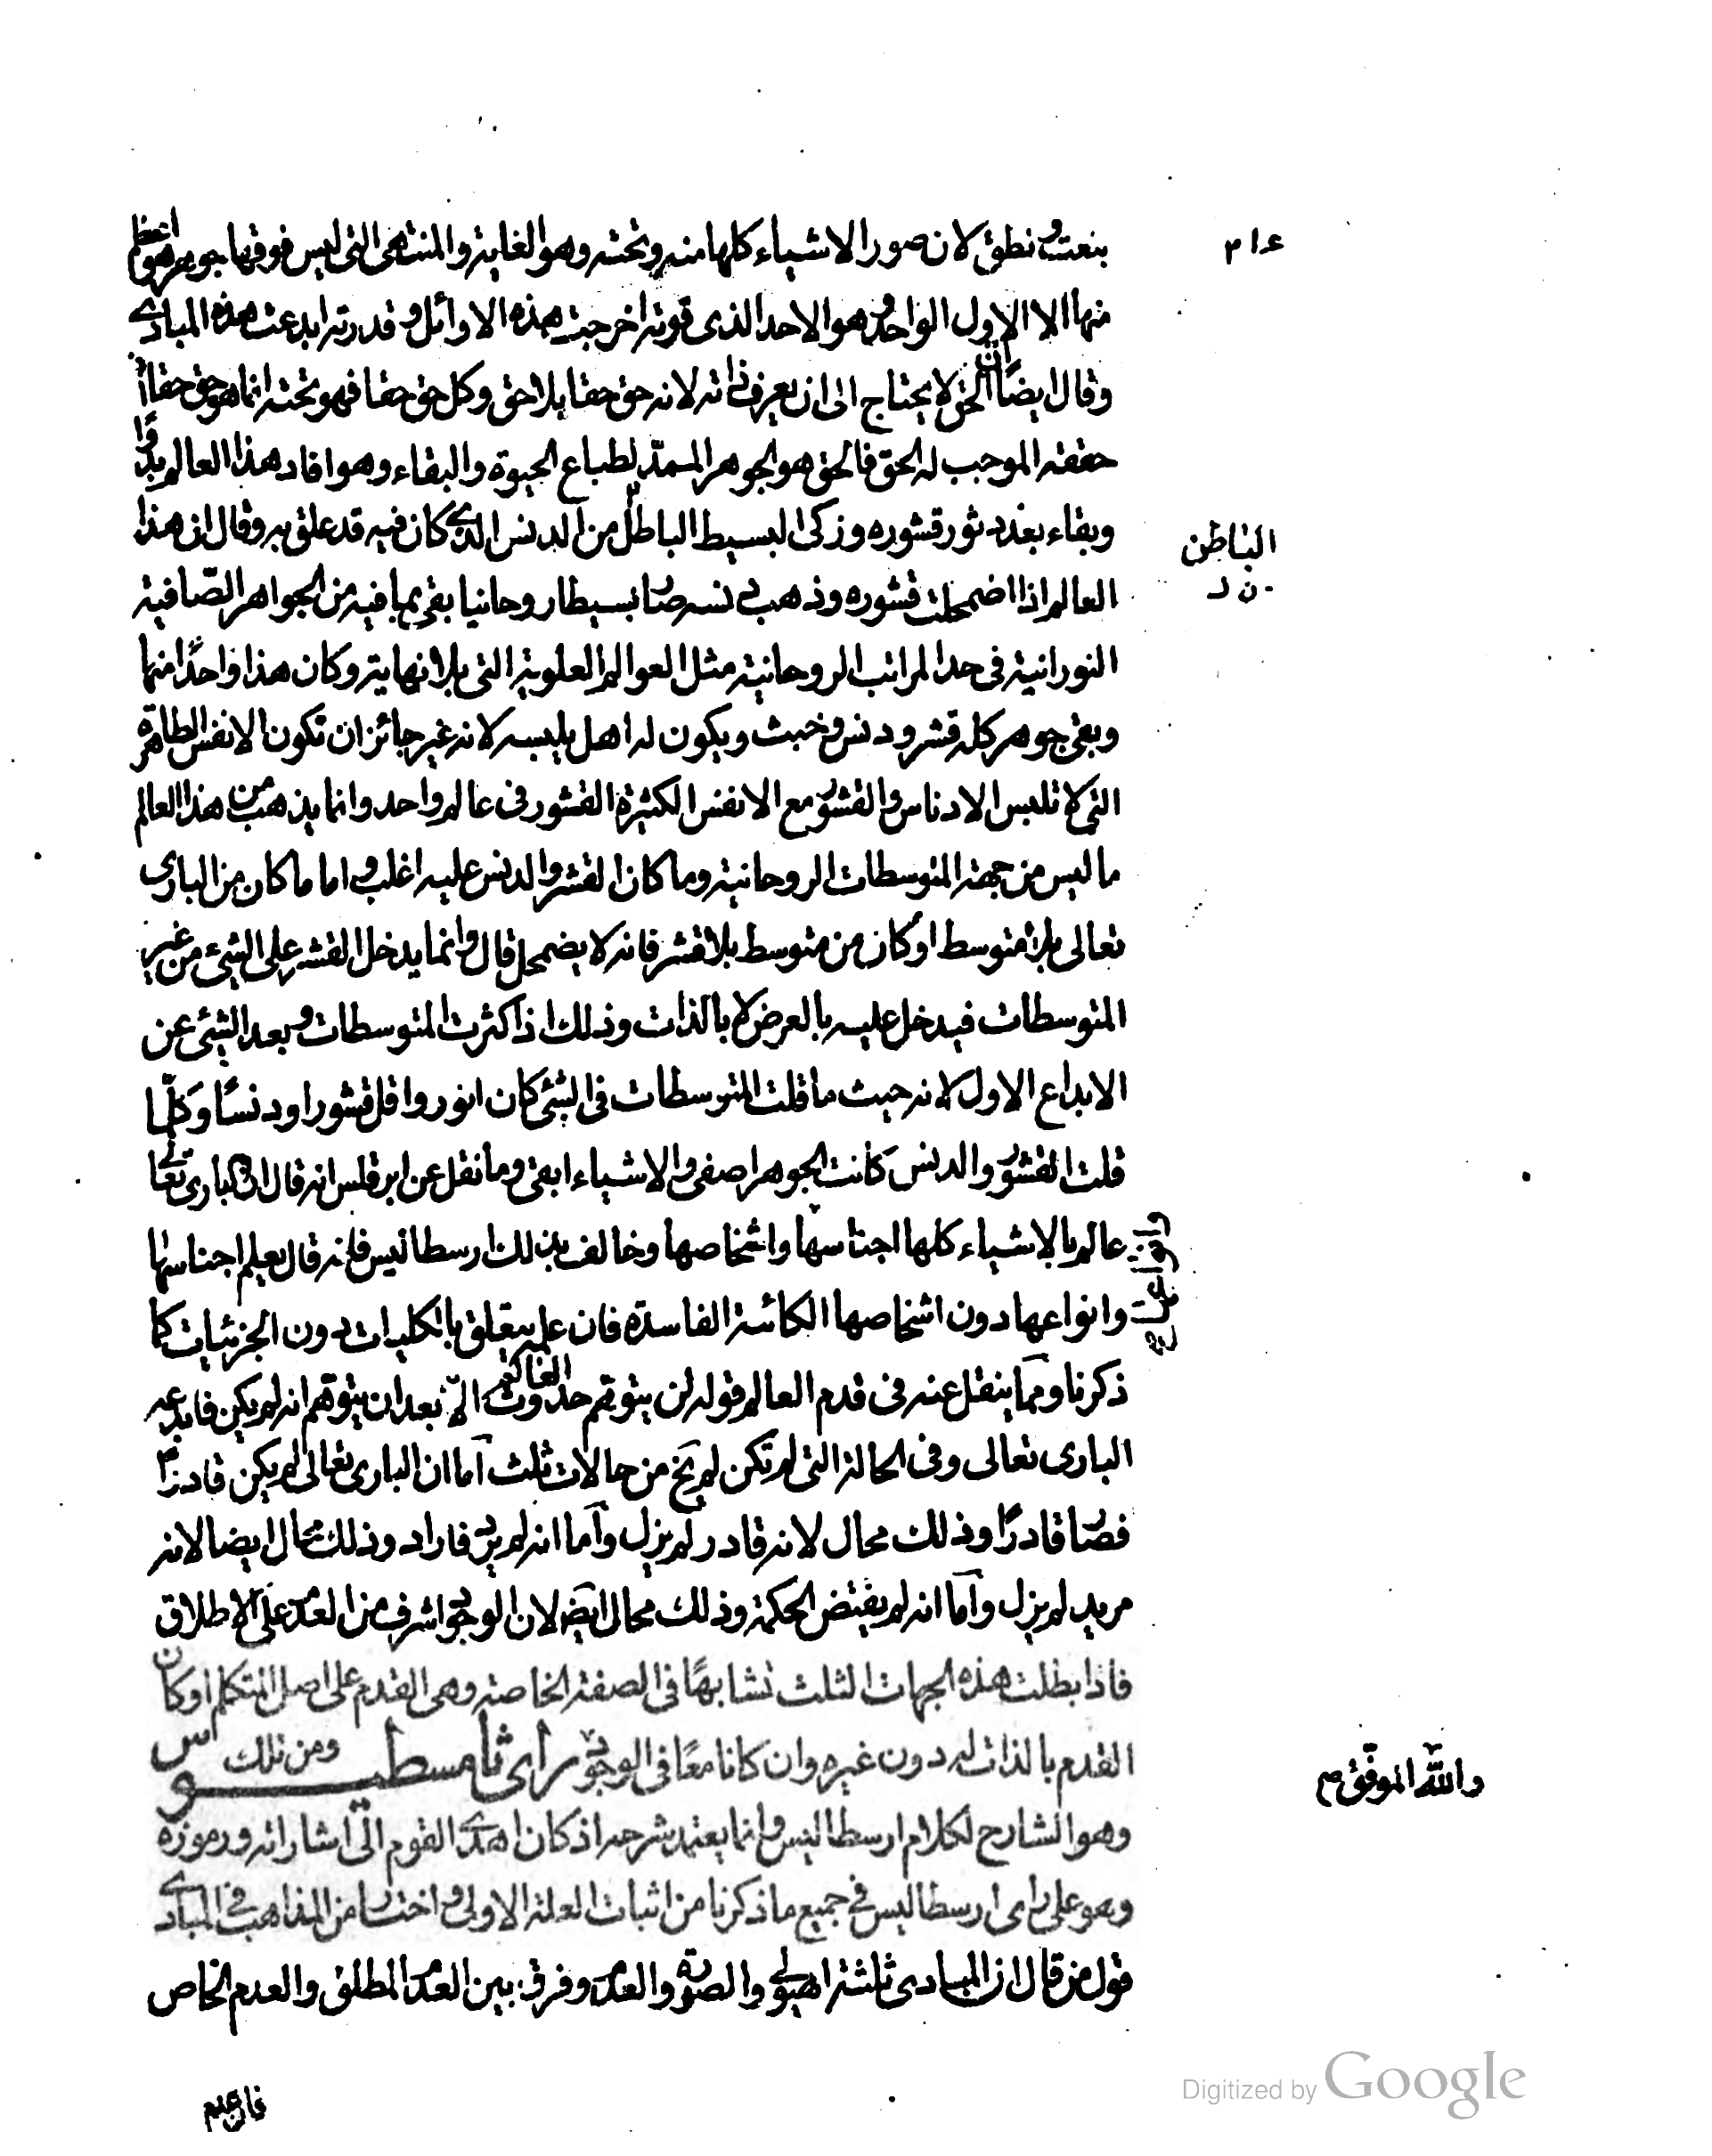 بنعت ونطق لان صور الاشياء كلها منه وتحته وهو الغاية والمنتهى التى ليس فوقها جوهر هو اعظم
منها الا الاول الواحد وهو الاحد الذى قوته اخرجت هذه الاوائل وقدرته ابدعت هذه المبادى
وقال ايضًا ان الحق لا يحتاج الى ان يعرف ذاته لانه حق حقا بلا حق وكل حق حقا فهو تحته انما هو حق حقا اذ
حققه الموجب له الحق فالحق هو الجوهر الممدّ لطباع الحيوة والبقاء وهو افاد هذا العالم بدوًا
وبقاء بعد دثور قشوره وزكى البسيط الباطن من الدنس الذى كان فيه قد علق به وقال ان هذا
الباطن
ن ل
العالم اذا اضمحلت قشوره وذهب دنسه صار بسيطا روحانيا بقى بما فيه من الجواهر الصّافية
النورانية فى حد المراتب الروحانية مثل العوالم العلوية التى بلا نهاية وكان هذا واحدًا منها
وبقى جوهر كله قشر ودنس وخبث ويكون له اهل يلبسه لانه غير جائز ان تكون الانفس الطاهرة
التى لا تلبس الادناس والقشور مع الانفس الكثيرة القشور فى عالم واحد وانما يذهب من هذا العالم
ما ليس من جهة المتوسطات الروحانية وما كان القشر والدنس عليه اغلب واما ما كان من البارى
تعالى بلا متوسط او كان من متوسط بلا قشر فانه لا يضمحل قال وانما يدخل القشر على الشئ من غير
المتوسطات فيدخل عليه بالعرض لا بالذات وذلك اذا كثرت المتوسطات وبعد الشئ عن
الابداع الاول لانه حيث ما قلت المتوسطات فى الشئ كان انور واقل قشورا ودنسًا وكلّما
قلت القشور والدنس كانت الجوهر اصفى والاشياء ابقى ومما نقل عن ابرقلس انه قال ان البارى تعالى
عالم بالاشياء كلها اجناسها واشخاصها وخالف بذلك ارسطاليس فانه قال يعلم اجناسها
وانواعها دون اشخاصها الكائنة الفاسدة فان علمه يتعلق بالكليات دون الجزئيات كما
ذكرنا ومما ينقل عنه فى قدم العالم قوله لن يتوهم حدوث العالم الّا بعد ان يتوهم انه لم يكن فابدعه
البارى تعالى وفى الحالة التى لم تكن لم يخ من حالات ثلث اما ان البارى تعالى لم يكن قادرًا
فصار قادرًا وذلك محال لانه قادر لم يزل واما انه لم يرد فاراد وذلك محال ايضا لانه
مريد لم يزل واما انه لم يقتض الحكمة وذلك محال ايض لان الوجود اشرف من العدم على الاطلاق
فاذا بطلت هذه الجهات الثلث تشابهًا فى الصفة الخاصة وهى القدم على اصل المتكلم او كان
القدم بالذات له دون غيره وان كانا معًا فى الوجود راى ثامسطيوس ومن تلك
والله الموفق
وهو الشارح لكلام ارسطاليس وانما يعتمد شرحه اذ كان اهدى القوم الى اشاراته ورموزه
وهو على راى ارسطاليس فى جميع ما ذكرنا من اثبات العلة الاولى واختار من المذاهب فى المبادى
قول من قال ان المبادى ثلثة الهيولى والصورة والعدم وفرق بين العدم المطلق والعدم الخاص
فان عدم
Digitized by Google